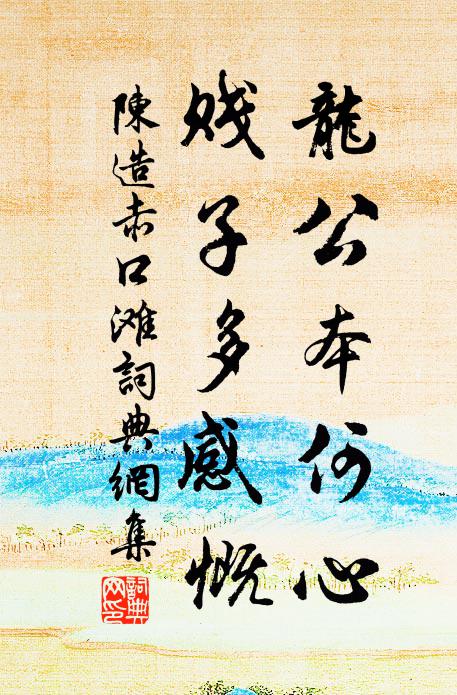 龍公本何心
賤子多感慨
陳造赤口滩詞典網集
詞典
网印